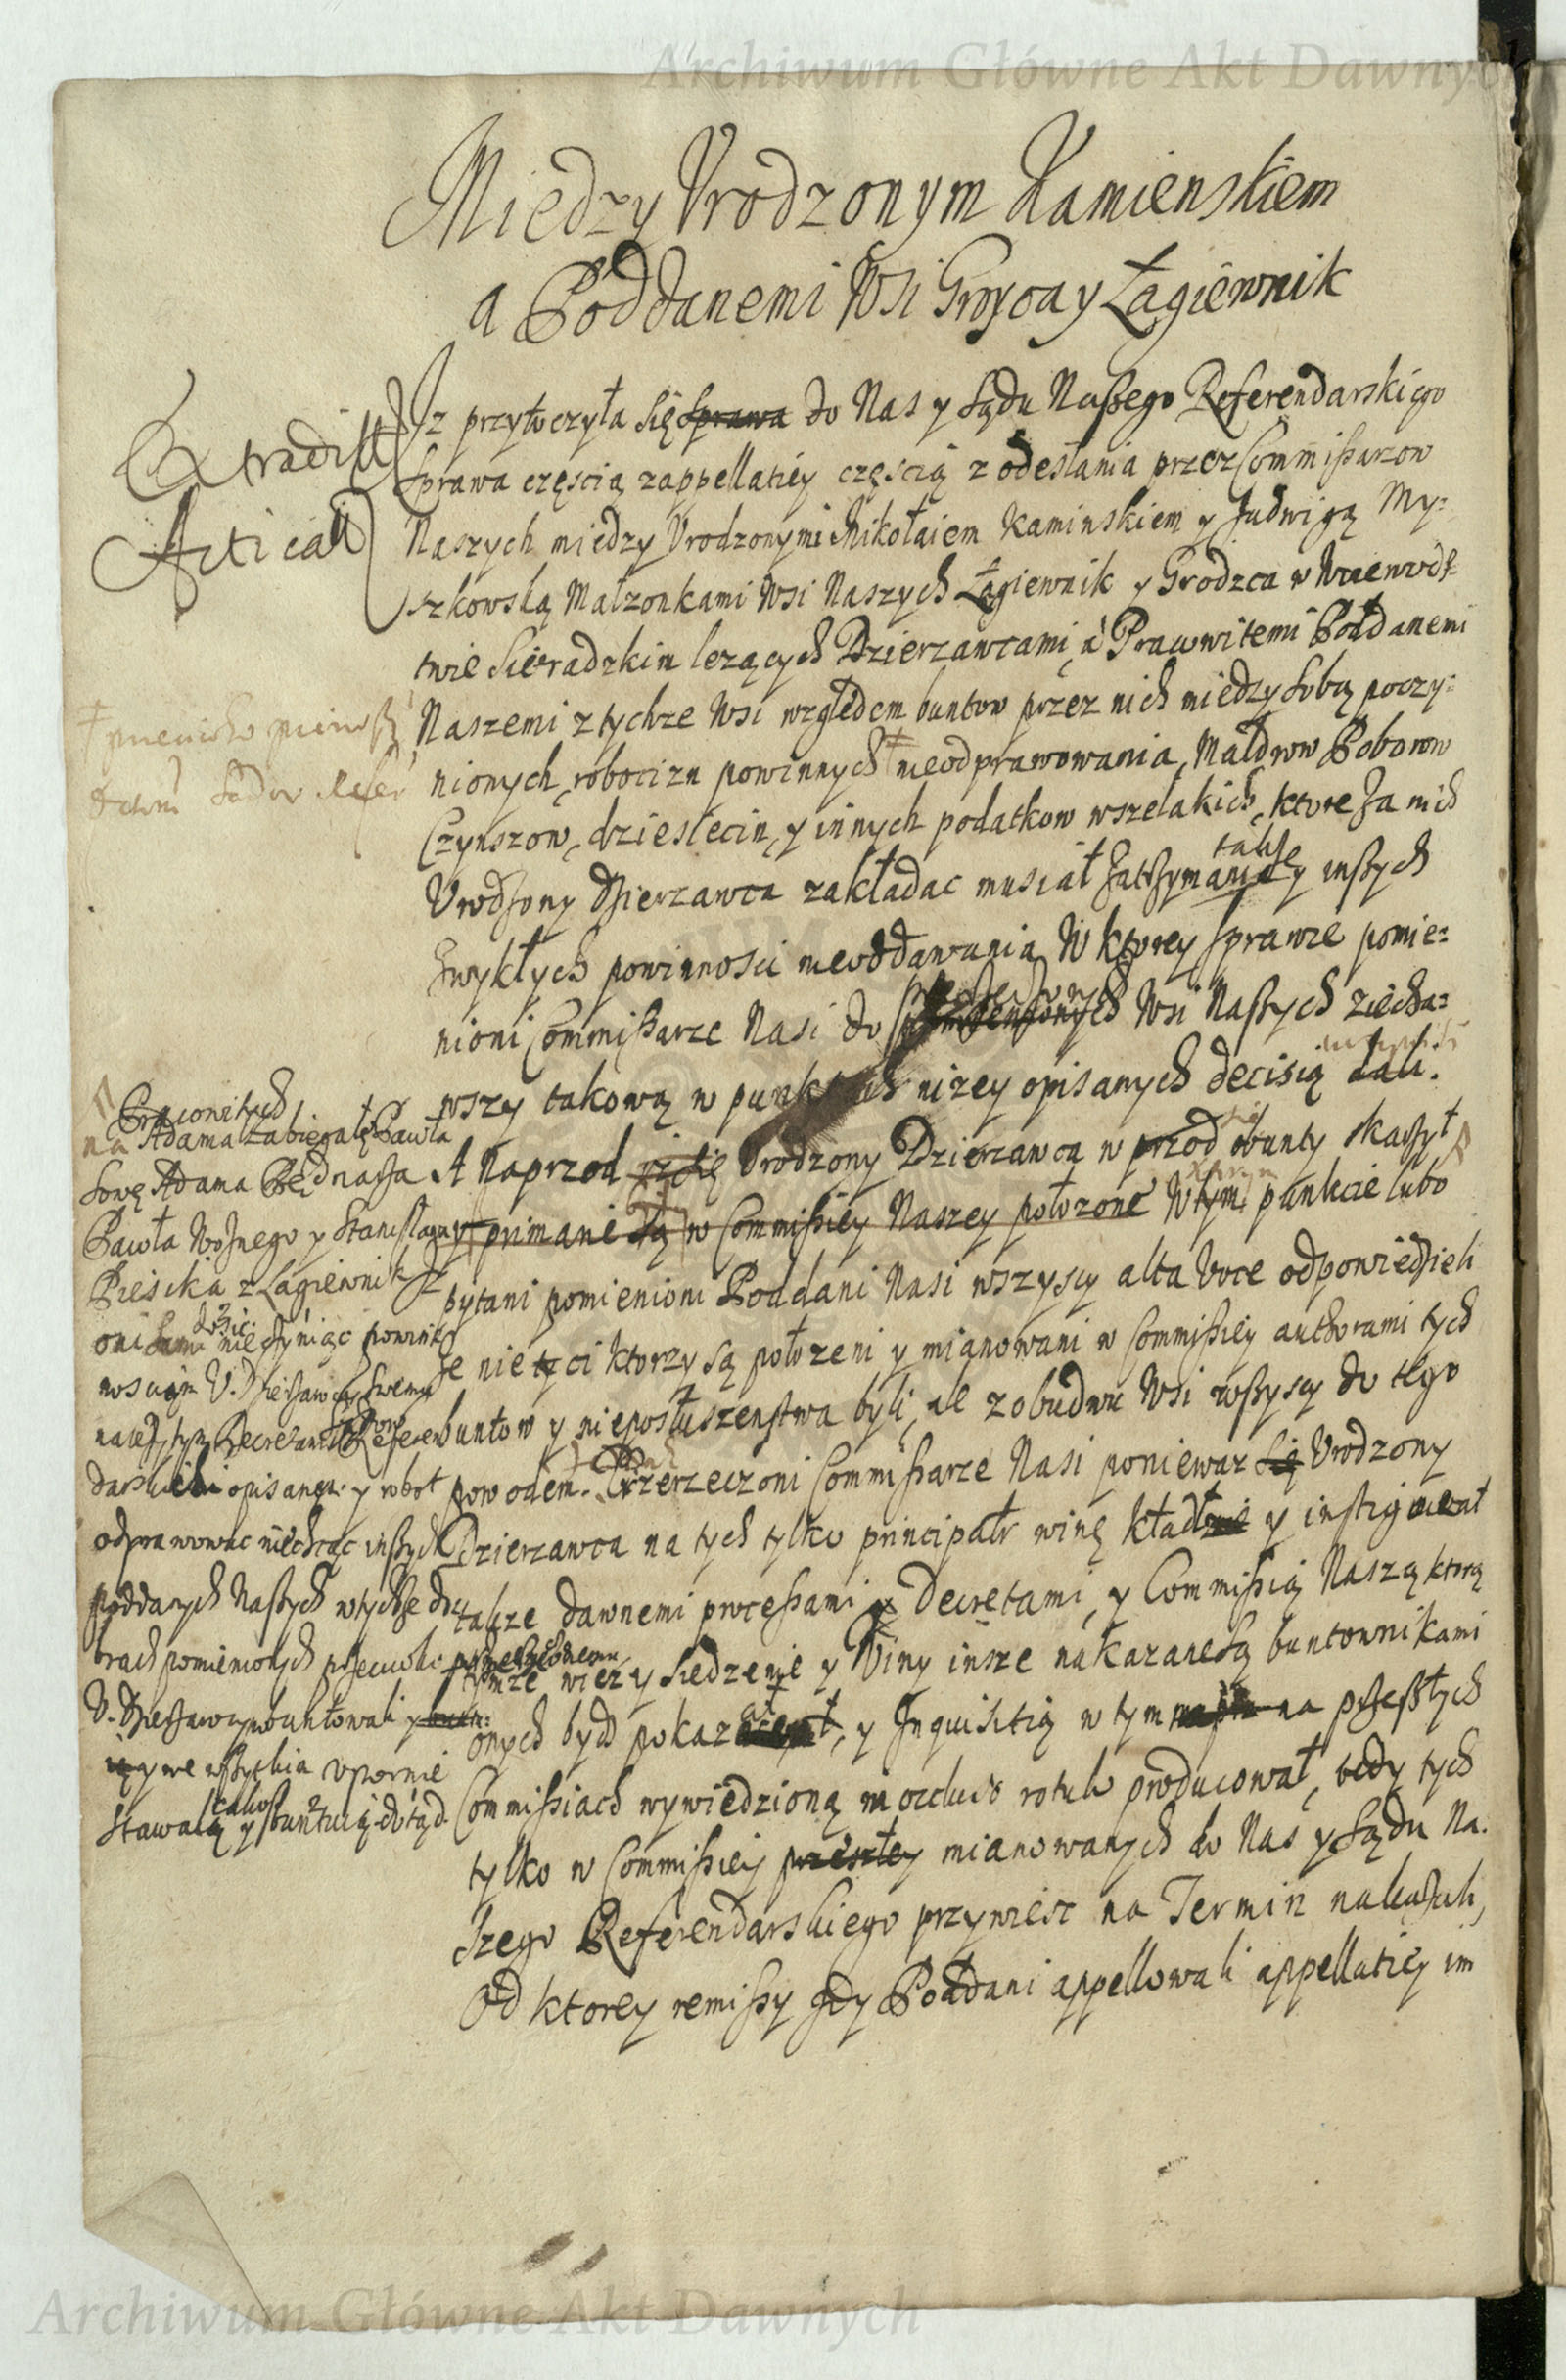 Archiwum Główne Akt Dawnych
Między Vrodzonym Kamienskiem
a Poddanemi Wsi Groyca y Łagiewnik
Extradit
Actica
Jz przytoczyła się sprawa do Nas y Sądu Naszego Referendarskiego
sprawa częscią z appellatiey częscią z odesłania przez Commissarzow
Naszych miedzy Vrodzonymi Mikołaiem Kaminskiem y Jadwigą My:
szkowską Małzonkami Wsi Naszych Łagiewnik y Grodzca w Woiewodz:
twie Sieradzkim lezących Dzierzawcami, a Prawwitemi Poddanemi
Naszemi z tychze Wsi względem buntow przez nich miedzy sobą poczy:
nionych, robocizn powinnych nieodprawowania, Małdrow Poborow
Czynszow, dziesiecin, y innych podatkow wszelakich, ktore za nich
Vrodzony Dzierzawca zakładac musiał zatrzymania y inszych
także
zwykłych powinnosci nieoddawania W ktorey sprawie pomie:
nioni Commissarze Nasi do pomienionych Wsi Naszych ziecha:
wszy takową w punktach nizey opisanych decisią dali.
A Naprzod iz się Vrodzony Dzierzawca w przod o bunty skarzył
primanie są w Commissiey Naszey połozone W tym punkcie lubo
pytani pomienieni Poddani Nasi wszyscy alta voce odpowiedzieli
ze nie ci ktorzy są połozeni y mianowani w Commissiey authorami tych
buntow y nieposłuszenstwa byli, ale z obudwu Wsi wszyscy do tego
powodem. Przerzeczoni Commissarze Nasi poniewaz się Vrodzony
Dzierzawca na tych tylko principałr winę kładł y instigował
takze dawnemi processami y Decretami, y Commissią Naszą ktorą
tymze wiezy siedzenie y Winy insze nakazane są buntownikami
przerzeczonemu
onych bydz pokazał, y Inquisitią w tym na przeszłych
Commissiach wywiedzioną in occluso rotulo producował, tedy tych
tylko w Commissiey przeszłey mianowanych do Nas y Sądu Na.
szego Referendarskiego przywiesc na Termin nakazali,
Od ktorey remissy gdy Poddani appellowali appellatiey im
na Adama Zabiegałę Pawła
Sowę Adama Bednarza
Pawła Woznego y Stanisława
Piesika z Łagiewnik
oni sami nie czyniąc powin
nosciom V. Dzierzawcy swemu
darskiemi opisanym y robot
odprawowac niechcąc inszych
poddanych Naszych w tychze do
brach pomienionych przeciwko
V. Dzierzawcy buntowali
y we wszytkim upornie
stawaią y buntuią dotąd.
Archiwum Główne Akt Dawnych